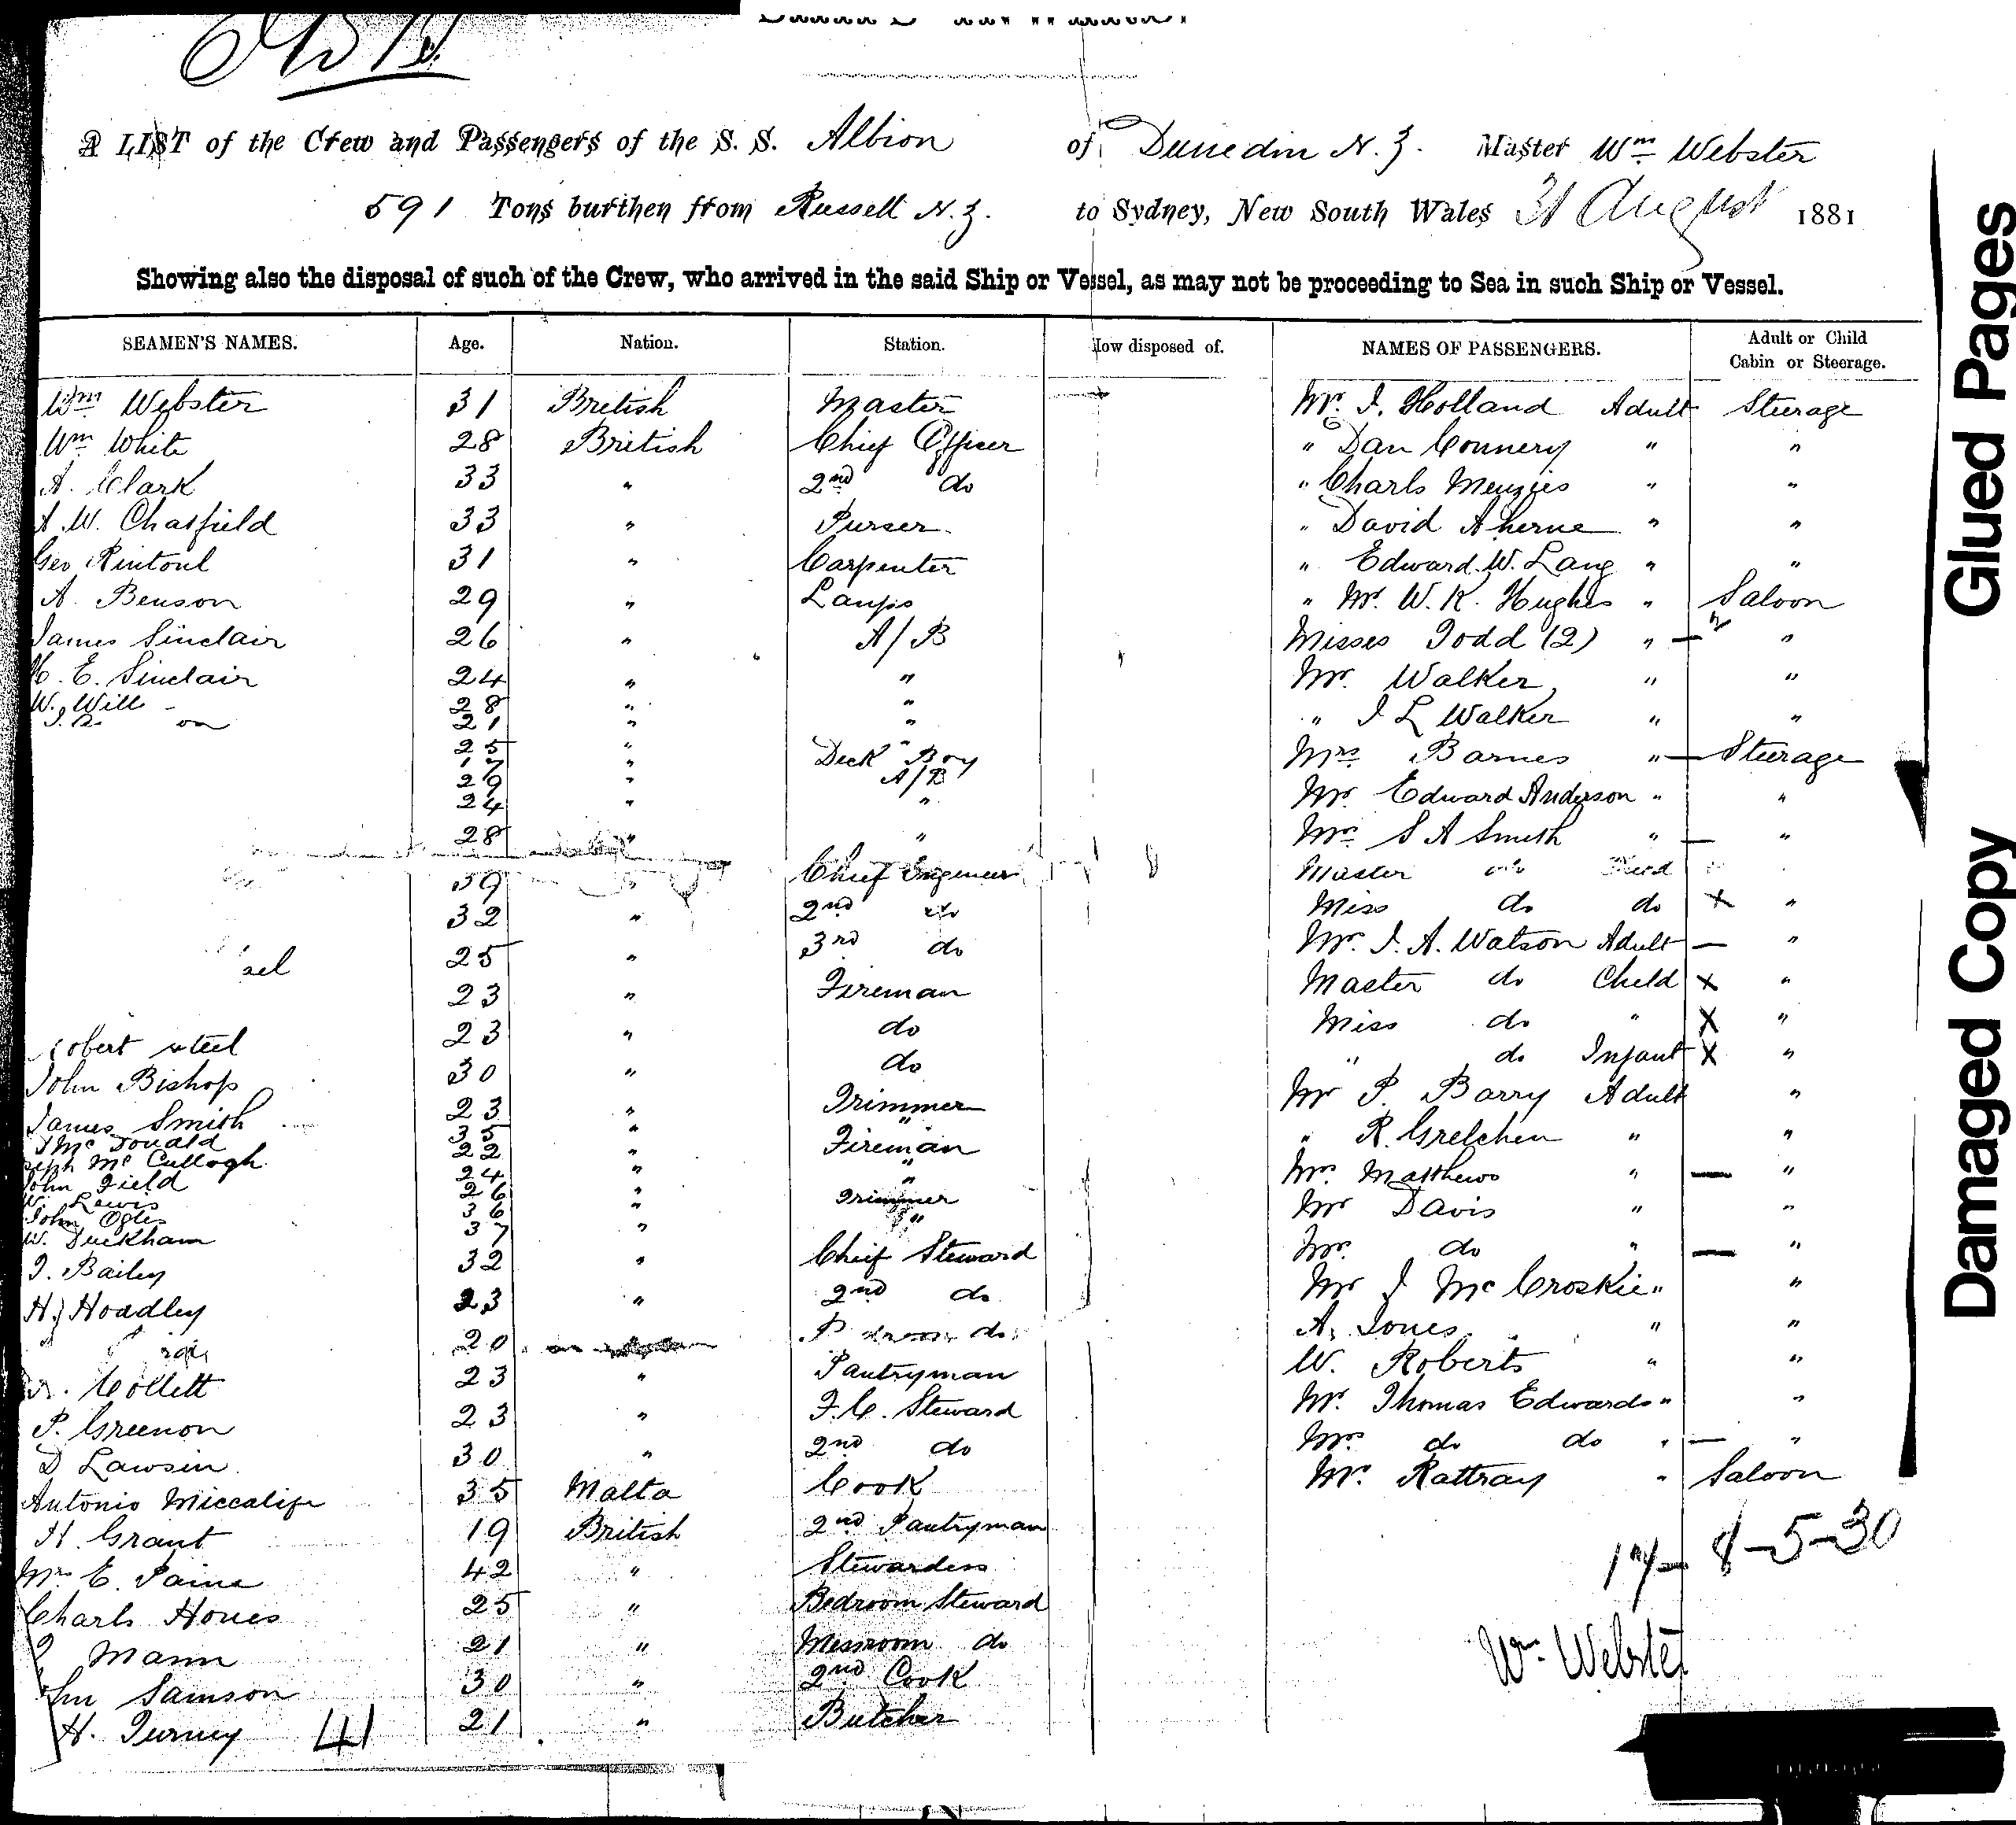 A LIST of the Crew and Passengers of the S. S. Albion of Dunedin N.Z. Master Wm Webster
591 Tons burthen from Russell N.Z. to Sydney, New South Wales 31 August 1881
Showing also the disposal of such of the Crew, who arrived in the said Ship or Vessel, as may not be proceeding to Sea in such Ship or Vessel.
SEAMEN'S NAMES. Age. Nation. Station. How disposed of. NAMES OF PASSENGERS. Adult or Child Cabin or Steerage.
Wm Webster 31 British Master Mr. J. Holland Adult Steerage
Wm White 28 British Chief Officer " Dan Connery " "
A. Clark 33 " 2nd do " Charls Menzies " "
A. W. Chatfield 33 " Purser " David Aherne " "
Geo Rintoul 31 " Carpenter " Edward. W. Lang " "
A. Benson 29 " Lamps " Mr. W. K. Hughes " Saloon
James Sinclair 26 " A/B Misses Todd (2) " — "
E. Sinclair 24 " " Mr. Walker " "
W. Will 28 " " " J L Walker " "
21 " "
25 " " Mrs Barnes " — Steerage
17 " Deck Boy
29 " A/B Mr. Edward Anderson " "
24 " "
28 " " Mrs S A Smith " — "
39 " Chief Engineer Master do Child
32 " 2nd do Miss do do x "
25 " 3rd do Mrs. J. A. Watson Adult — "
23 " Fireman Master do Child x "
Robert Steel 23 " do Miss do " x "
John Bishop 30 " do " do Infant x "
James Smith 23 " Trimmer Mr P. Barry Adult "
McDonald 35 " "
Joseph McCullogh 22 " Fireman " R. Gretchen " "
John Field 24 " " Mrs. Matthews " — "
W. Lewis 26 " Trimmer
John Ogles 36 " " Mr Davis " "
W. Duckham 37 "
J. Bailey 32 " Chief Steward Mrs. do " — "
H J Hoadley 23 " 2nd do Mr J McCroskie " "
20 do A. Jones " "
Collett 23 " Pantryman W. Roberts " "
P. Greenon 23 " F.C. Steward Mr. Thomas Edwards " "
D Lawsin 30 " 2nd do Mrs do do " — "
Antonio Miccalife 35 Malta Cook Mr. Rattray " Saloon
H. Grant 19 British 2nd Pantryman
Mrs E. Paine 42 " Stewardess 17 — 8-5-30
Charls Hones 25 " Bedroom Steward
Mann 21 " Messroom do Wm Webster
John Samson 30 " 2nd Cook
H. Turney 41 21 " Butcher
Glued Pages
Damaged Copy